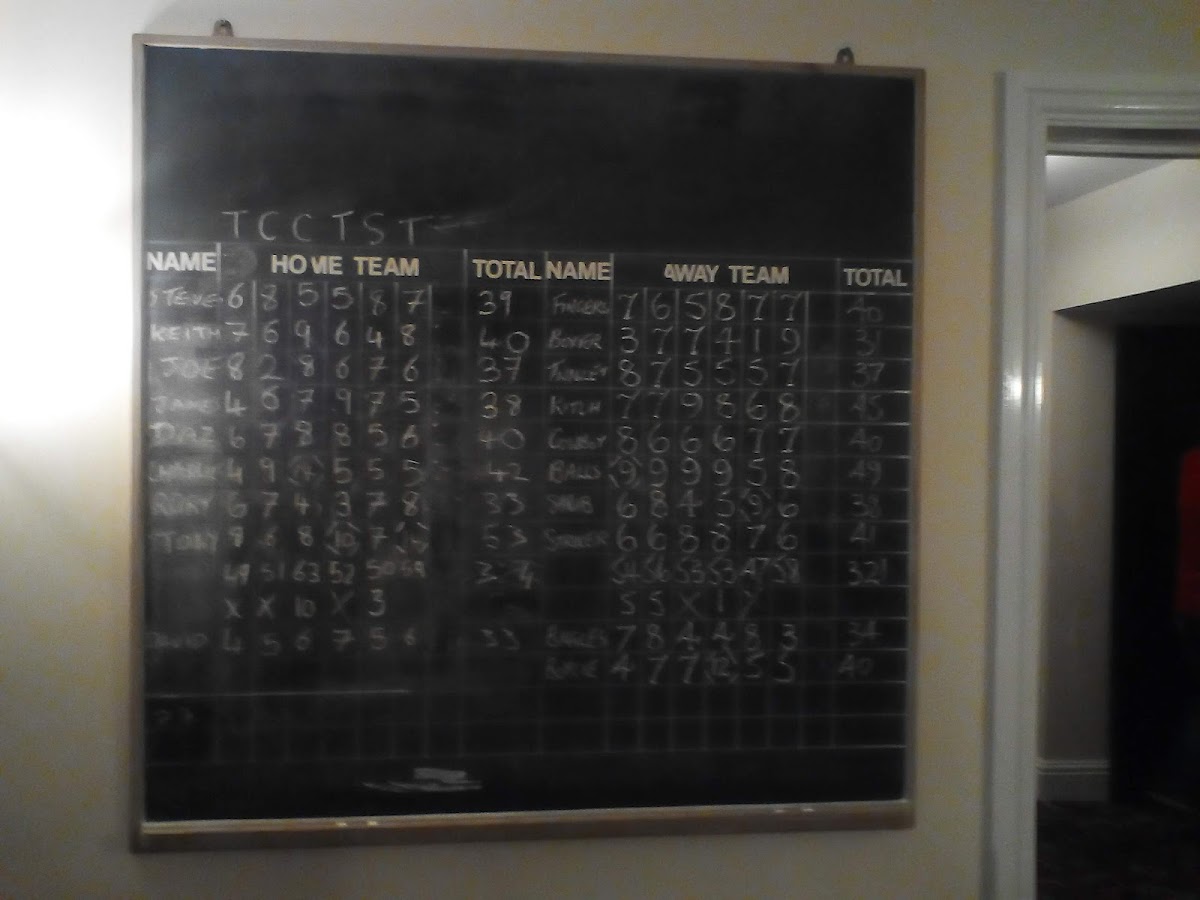 TCCTST
NAME HOME TEAM TOTAL NAME AWAY TEAM TOTAL
STEVE 6 8 5 5 8 7 39 7 6 5 8 7 7 40
KEITH 7 6 9 6 4 8 40 BOXER 3 7 7 4 1 9 31
JOE 8 2 8 6 7 6 37 8 7 5 5 5 7 37
JAMES 4 6 7 9 7 5 38 KITCH 7 7 9 8 6 8 45
DAZ 6 7 8 8 5 6 40 8 6 6 6 7 7 40
CHARLIE 4 9 5 5 5 42 BALLS (9) 9 9 9 5 8 49
RORY 6 7 4 3 7 8 33 6 8 4 5 (9) 6 38
TOBY 8 (10) 7 53 6 6 8 8 7 6 41
49 51 63 52 50 59 54 56 53 53 47 58 321
X X 10 X 3 5 5 X 1 X
DAVID 4 5 6 7 5 6 33 7 8 4 4 8 3 34
4 7 7 (12) 5 5 40